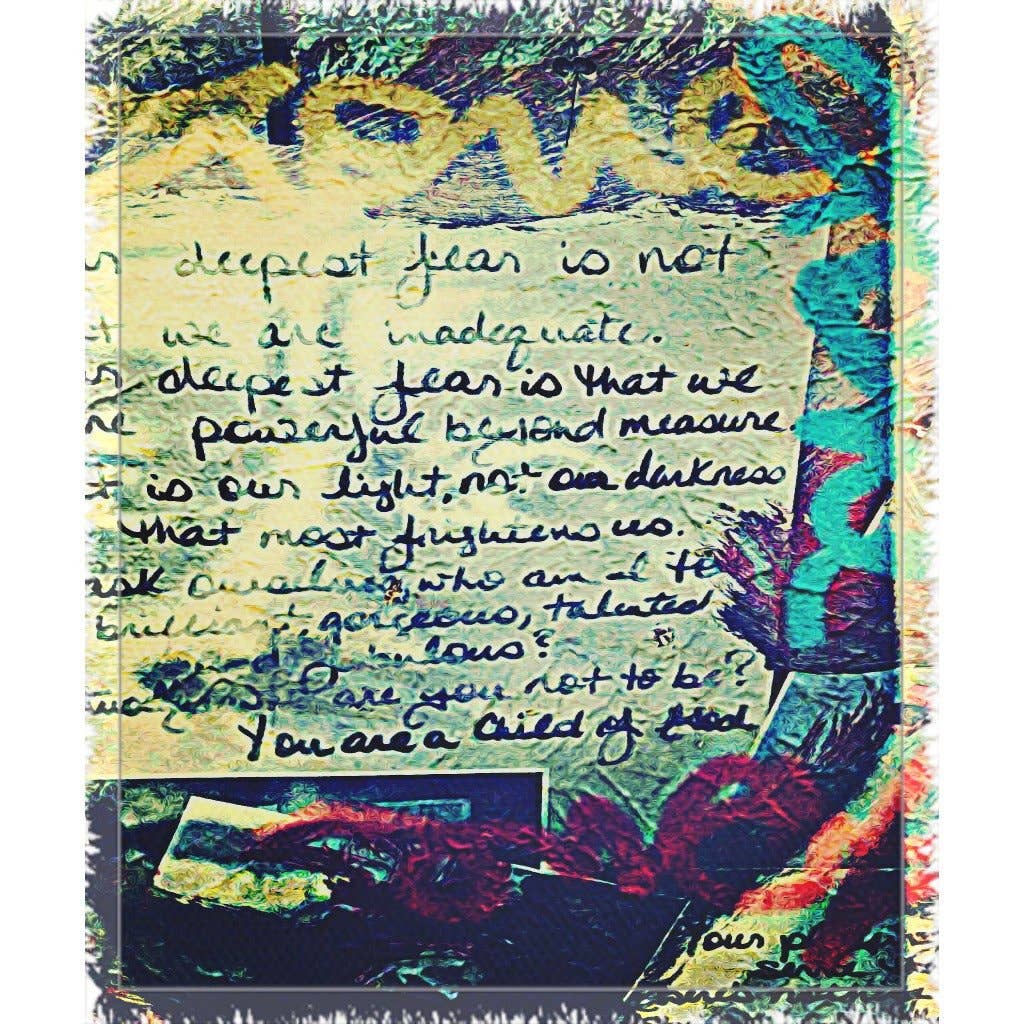 deepest fear is not
we are inadequate.
deepest fear is that we
powerful beyond measure.
is our light, not our darkness
that most frightens us.
ask ourselves, who am I to
brilliant, gorgeous, talented
and fabulous?
are you not to be?
You are a Child of God
Your